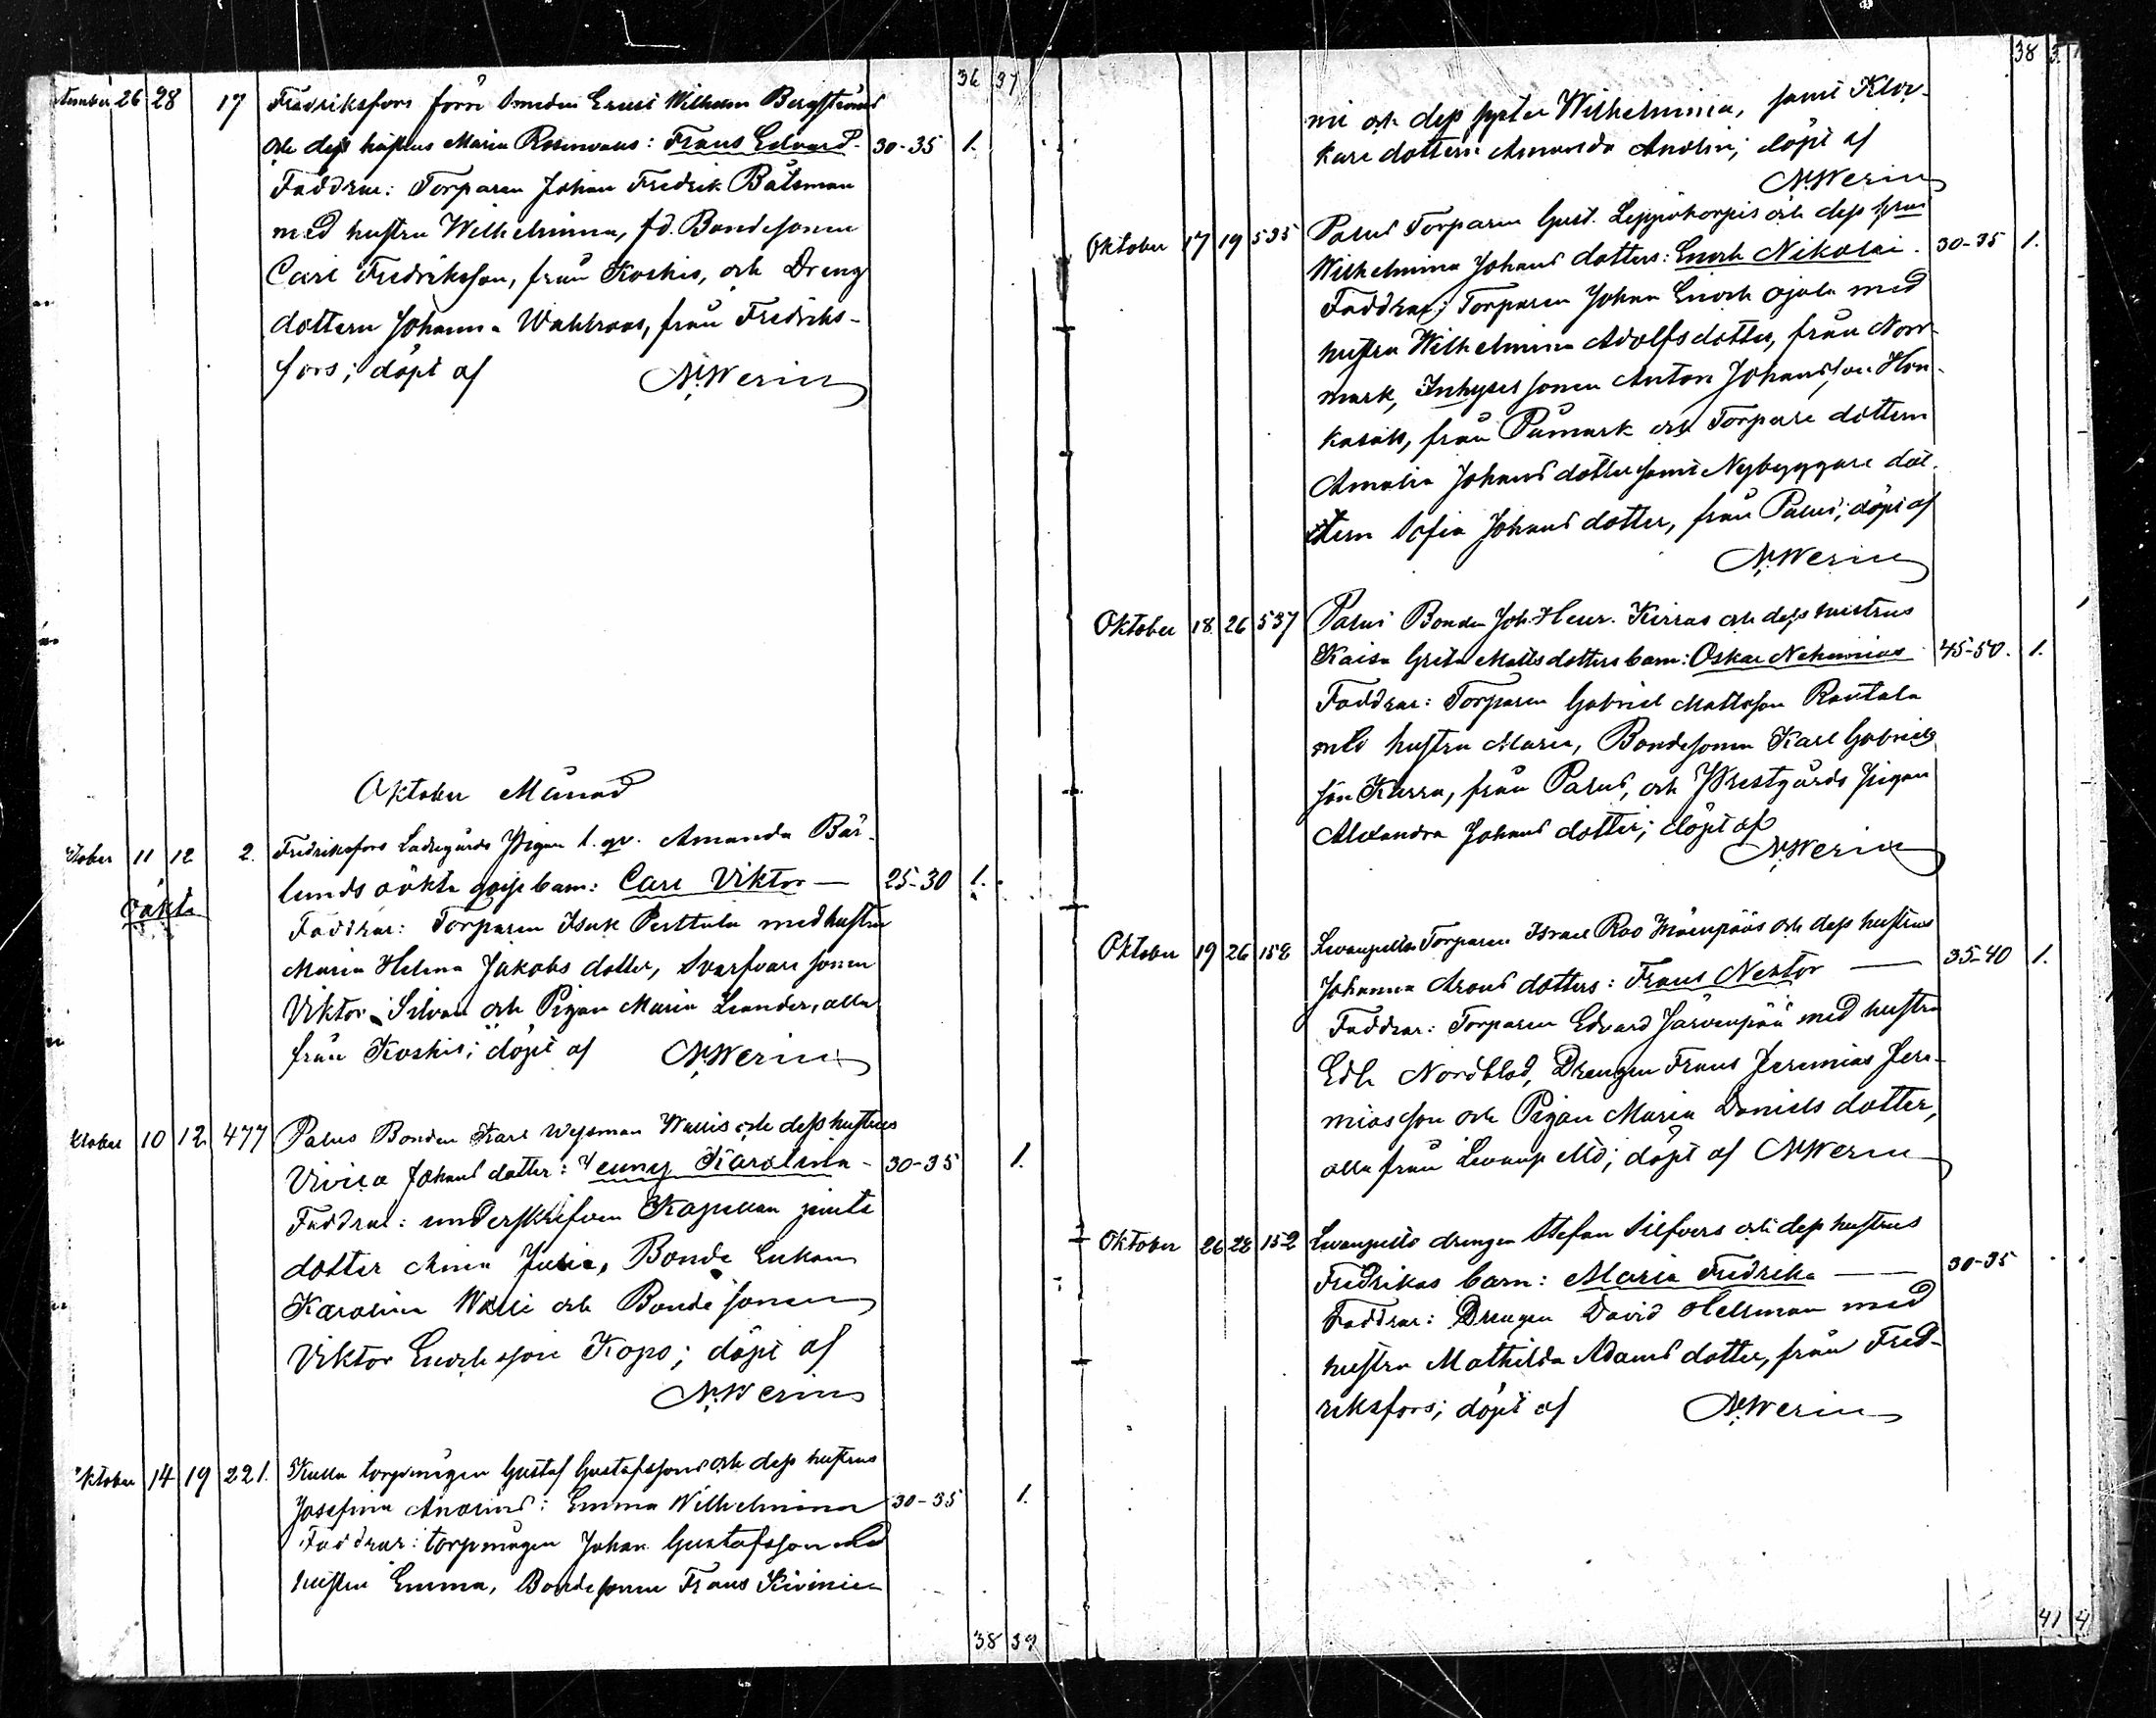 36 37
tember 26 28 17 Fredriksfors förre Smeden Ernst Wilhelm Bergströms
och dess hustrus Maria Rosenvans: Frans Edvard - 30-35 1.
Faddrar: Torparen Johan Fredrik Båtsman
med hustru Wilhelmina, fd. Bondesonen
Carl Fredriksson, från Koskis, och Dreng
dottern Johanna Wahlroos, från Fredriks-
fors; döpt af N. Werin
Oktober Månad
tober 11 12 2. Fredriksfors Ladugårds Pigan l. qv. Amanda Bär-
lunds oäkta gosse barn: Carl Viktor — 25-30 1.
oäkta
Faddrar: Torparen Isak Perttula med hustru
Maria Helena Jakobs dotter, Svarfvare sonen
Viktor Silvan och Pigan Maria Leander, alla
från Koskis; döpt af N. Werin
ktober 10 12 477 Palus Bonden Karl Wessman Wallis och dess hustrus
Vivica Johans dotter: Jenny Karolina - 30-35 1.
Faddrar: underskrifven Kapellan jemte
dotter Aina Julia, Bonde Enkan
Karolina Walli och Bonde sonen
Viktor Enochsson Kopo; döpt af
N. Werin
ktober 14 19 221. Kulla torpmågen Gustaf Gustafssons och dess hustrus
Josefina Anolins: Emma Wilhelmina 30-35 1.
Faddrar: torpmågen Johan Gustafsson med
hustru Emma, Bondesonen Frans Kivinie-
38 39
38 3
mi och dess syster Wilhelmina, samt Kloc-
kare dottern Amanda Anolin; döpt af
N. Werin
Oktober 17 19 535 Palus Torparen Gust. Leppikorpis och dess hrus
Wilhelmina Johans dotters: Enoch Nikolai. 30-35 1.
Faddrar: Torparen Johan Enoch Ojala med
hustru Wilhelmina Adolfs dotter, från Norr-
mark, Inhyses sonen Anton Johansson Hon-
kasalo, från Påmark och Torpare dottern
Amalia Johans dotter samt Nybyggare dot-
tern Sofia Johans dotter, från Palus; döpt af
N. Werin
Oktober 18. 26 537 Palus Bonden Joh. Henr. Kirras och dess hustrus
Kaisa Greta Matts dotters barn: Oskar Nehemias 45-50. 1.
Faddrar: Torparen Gabriel Mattsson Rautala
med hustru Maria, Bondesonen Karl Gabriels
son Karra, från Palus, och Prestgårds Pigan
Alexandra Johans dotter; döpt af
N. Werin
Oktober 19 26 158 Levanpelto Torparen Israel Roo Krämpääs och dess hustrus
Johanna Arons dotters: Frans Nestor — 35-40 1.
Faddrar: Torparen Edvard Järvenpää med hustru
Edla Nordblad, Drengen Frans Jeremias Jere-
miasson och Pigan Maria Daniels dotter,
alla från Levanpelto; döpt af N. Werin
Oktober 26 28 152 Levanpelto drengen Stefan Silfvers och dess hustrus
Fredrikas barn: Maria Fredrika — 30-35
Faddrar: Drengen David Hellman med
hustru Mathilda Adams dotter, från Fred-
riksfors; döpt af N. Werin
41 4